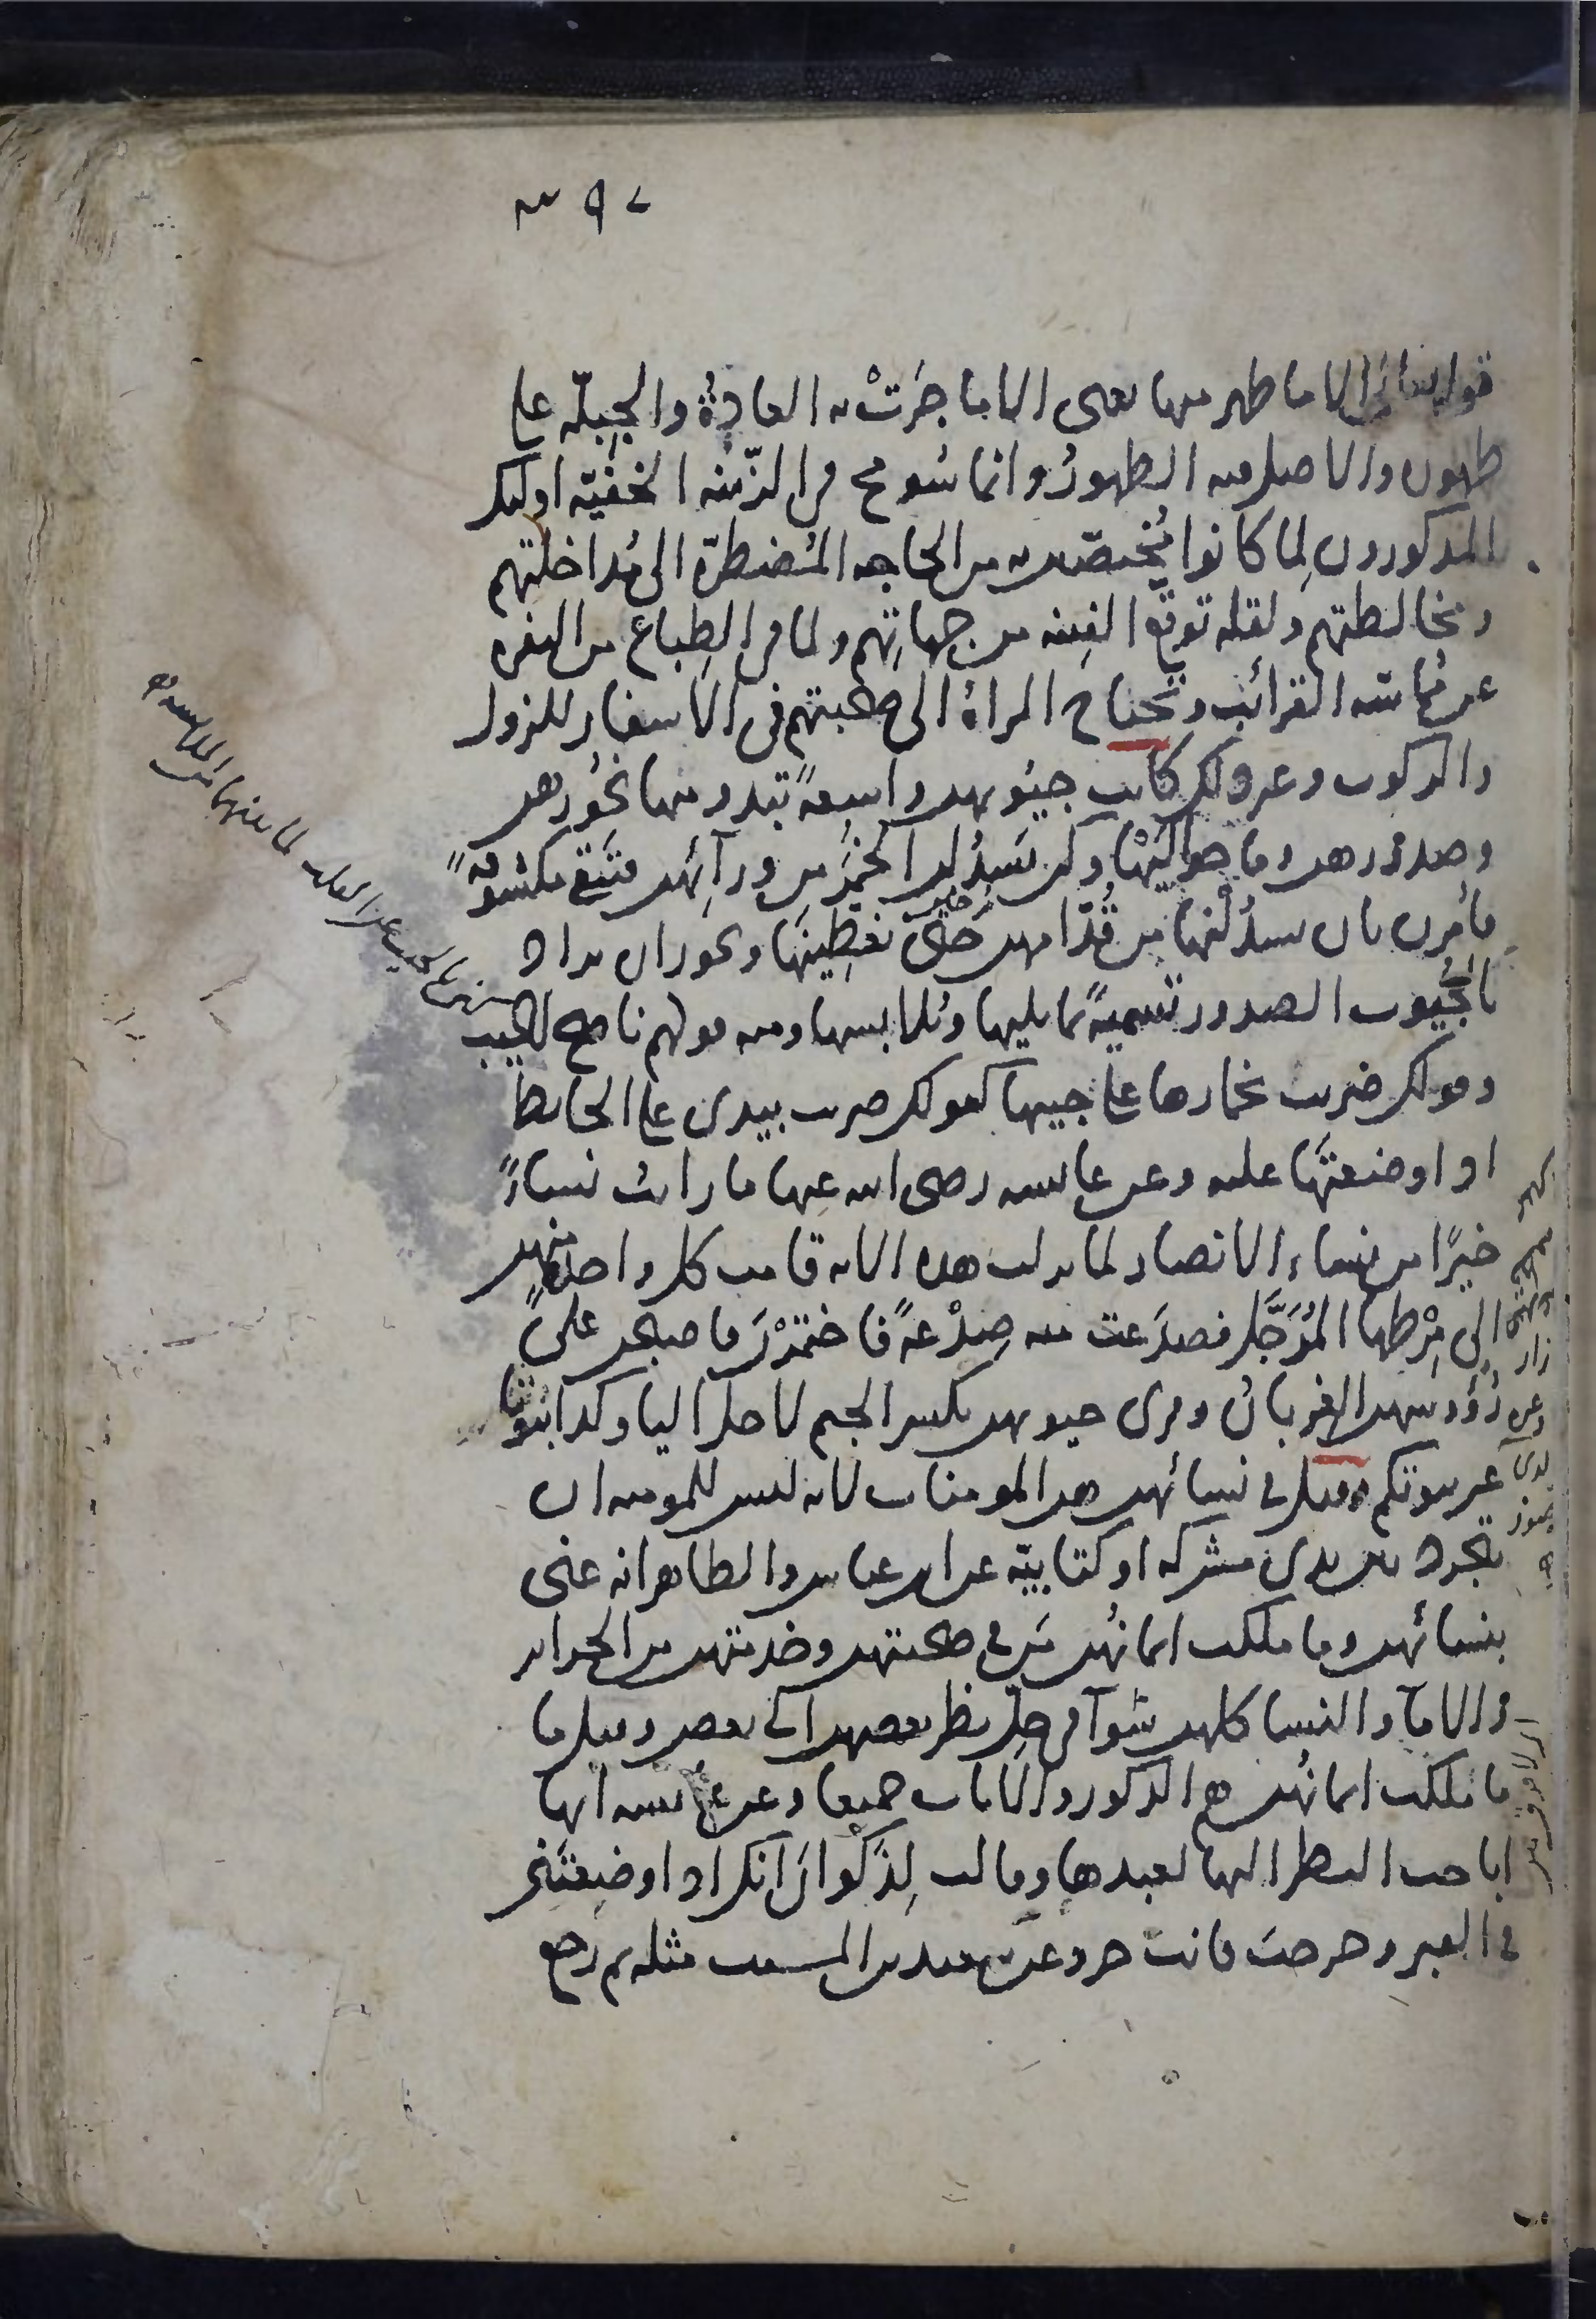 قوله تعالى الا ما ظهر منها يعنى الا ما جَرَتْ به العادةُ والجِبِلّه على
ظهوره والاصل فيه الظهورُ وانما سُومح فى الزّينه الخفيّه اولئك
المذكورون لِما كانوا يُختصّين به من الحاجه المُضطرّه الى مُداخلتهم
ومخالطتهم ولقله توقّع الفِتنه من جهاتِهم ولما فى الطِباع من النفره
عن مُماسّه القرائبِ وتحتاح المراهُ الى صُحبتهم فى الاسفار للنزول
والركوب وغير ذلك كانت جيُوبهن واسِعهً تبدو منها نحُورهن
وصدُورهن وما حوالَيْها وكن يَسدُلن الخُمرَ من ورآئهن فتبَقى مكشوفهً
فأُمِرن بان يسدُلْنها من قُدّامهن حتّى تغطِينَها ويجوز ان يراد
بالجُيوب الصدور تسميهً بما يليها ويُلابسها ومنه قولهم ناصح الجيب
وقولك ضربت بخمارها على جيبها كقولك ضربت بيدى على الحايط
اذا وضعتَها عليه وعن عايشه رضى الله عنها ما رايتُ نساءً
خيرًا من نساء الانصار لما نزلت هذه الايه قامت كل واحدهٍ منهن
الى مِرْطها المُرَحَّل فصدَعت منه صِدْعهً فاختمَرْنَ فاصبحن على
رُؤوسهن الغِربانُ وقرى جيوبهن بكسر الجيم لاجل اليا وكذا بُيُوتًا
غير بيوتكم وقيل فى نسائهن هن المومنات لانه ليس للمومنه ان
تتجرد بين يدى مشركه او كتابيّه عن ابن عباس والظاهر انه عنى
بنسائهن وما ملكت ايمانُهن مَن فى صحبتهن وخدمتهن من الحراير
والامآ والنسا كلهن سَوآ فى حِلّ نظر بعضهن الى بعض وقيل ما
ما ملكت ايمانُهن هم الذكور والاناث جميعا وعن عايشه انها
اباحت النظر اليها لعبدها وقالت لِذَكْوانَ انك اذا وضعتَنى
فى القبر وخرجتَ فانت حر وعن سعيد بن المسيب مثله ثم رجع